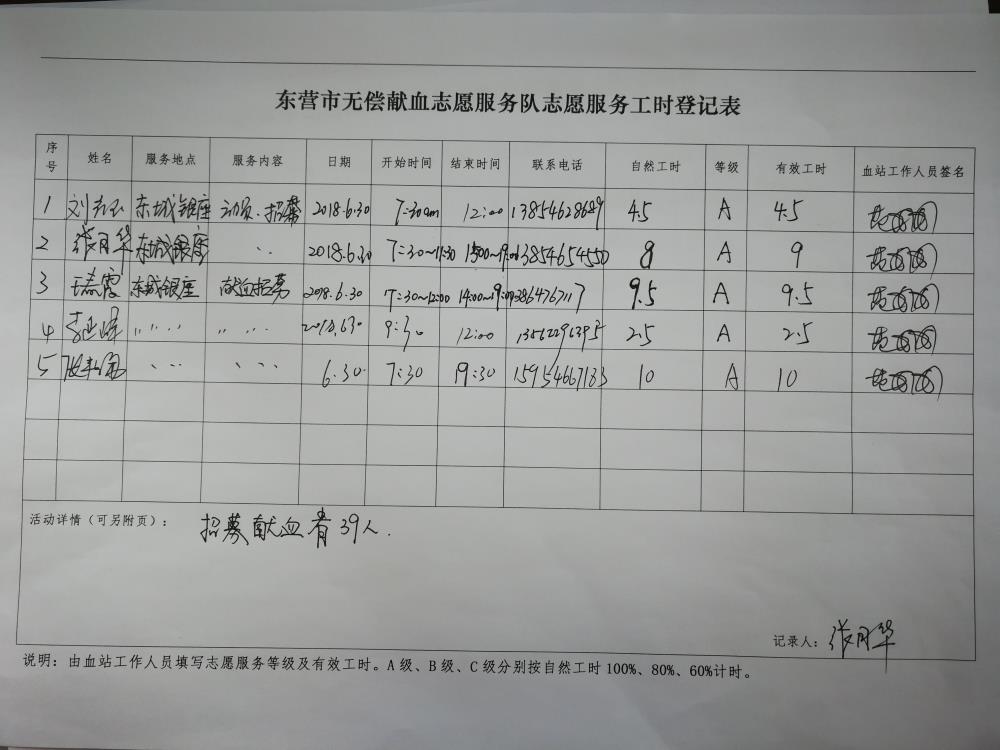 东营市无偿献血志愿服务队志愿服务工时登记表
序号 姓名 服务地点 服务内容 日期 开始时间 结束时间 联系电话 自然工时 等级 有效工时 血站工作人员签名
1 刘 东城银座 动员、招募 2018.6.30 7:30am 12:00 13854628689 4.5 A 4.5
2 张月华 东城银座 〃 2018.6.30 7:30~11:30 15:00~19:00 13854654550 8 A 9
3 王嘉霞 东城银座 献血招募 2018.6.30 7:30~12:00 14:00~19:00 13864767117 9.5 A 9.5
4 李 〃 〃 〃 〃 2018.6.30 9:30 12:00 13562296395 2.5 A 2.5
5 张 6.30 7:30 19:30 15954667183 10 A 10
活动详情（可另附页）： 招募献血者39人.
记录人： 张月华
说明：由血站工作人员填写志愿服务等级及有效工时。A级、B级、C级分别按自然工时100%、80%、60%计时。